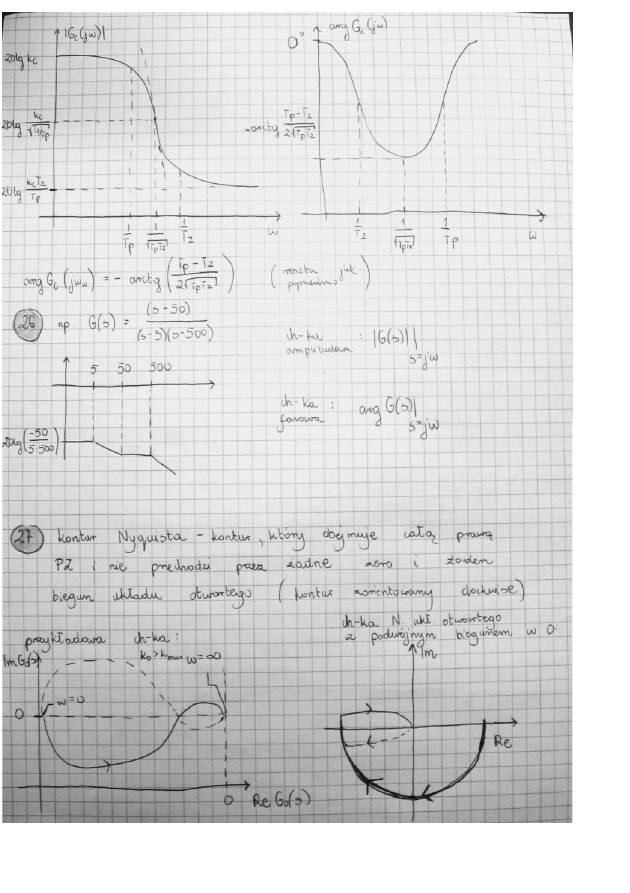 |G_c(jω)|
20lg k_c
20lg k_c/√(T_2/T_p)
20lg k_cT_2/T_p
1/T_p 1/√(T_pT_2) 1/T_2 ω
ang G_c(jω)
0°
-arctg (T_p-T_2)/(2√(T_pT_2))
1/T_2 1/√(T_pT_2) 1/T_p ω
ang G_c(jω_w) = - arctg ( (T_p-T_2)/(2√(T_pT_2)) ) ( reszta jak poprzednio )
26 np. G(s) = (s-50)/((s-5)(s-500))
ch-ka amplitudowa : |G(s)|| s=jω
5 50 500
20lg(-50/(5·500))
ch-ka fazowa : ang G(s)| s=jω
27 kontur Nyquista - kontur, który obejmuje całą prawą
PZ i nie przechodzi przez żadne zero i żaden
biegun układu otwartego ( kontur zorientowany clockwise)
przykładowa ch-ka :
Im G_0(s) k_0>k_max ω=∞
ω=0
0
0 Re G_0(s)
ch-ka N. ukł otwartego
z podwójnym biegunem w 0
Im
Re